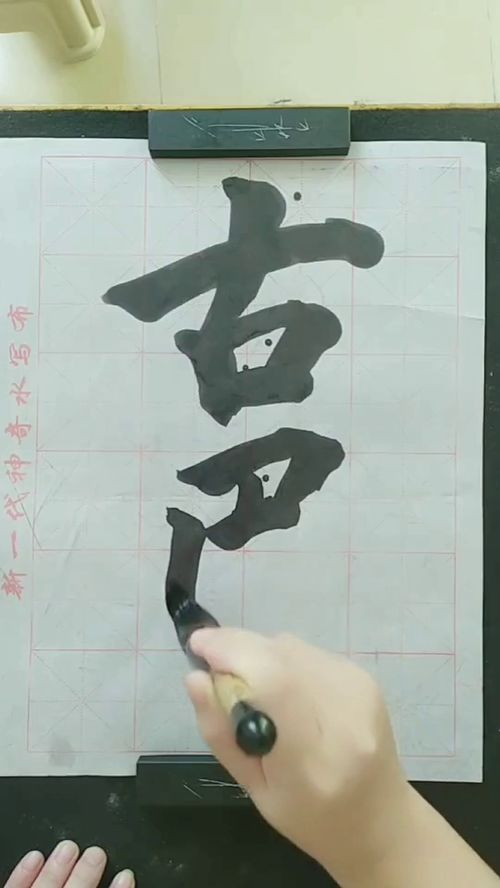 古巴
新一代神奇水写布